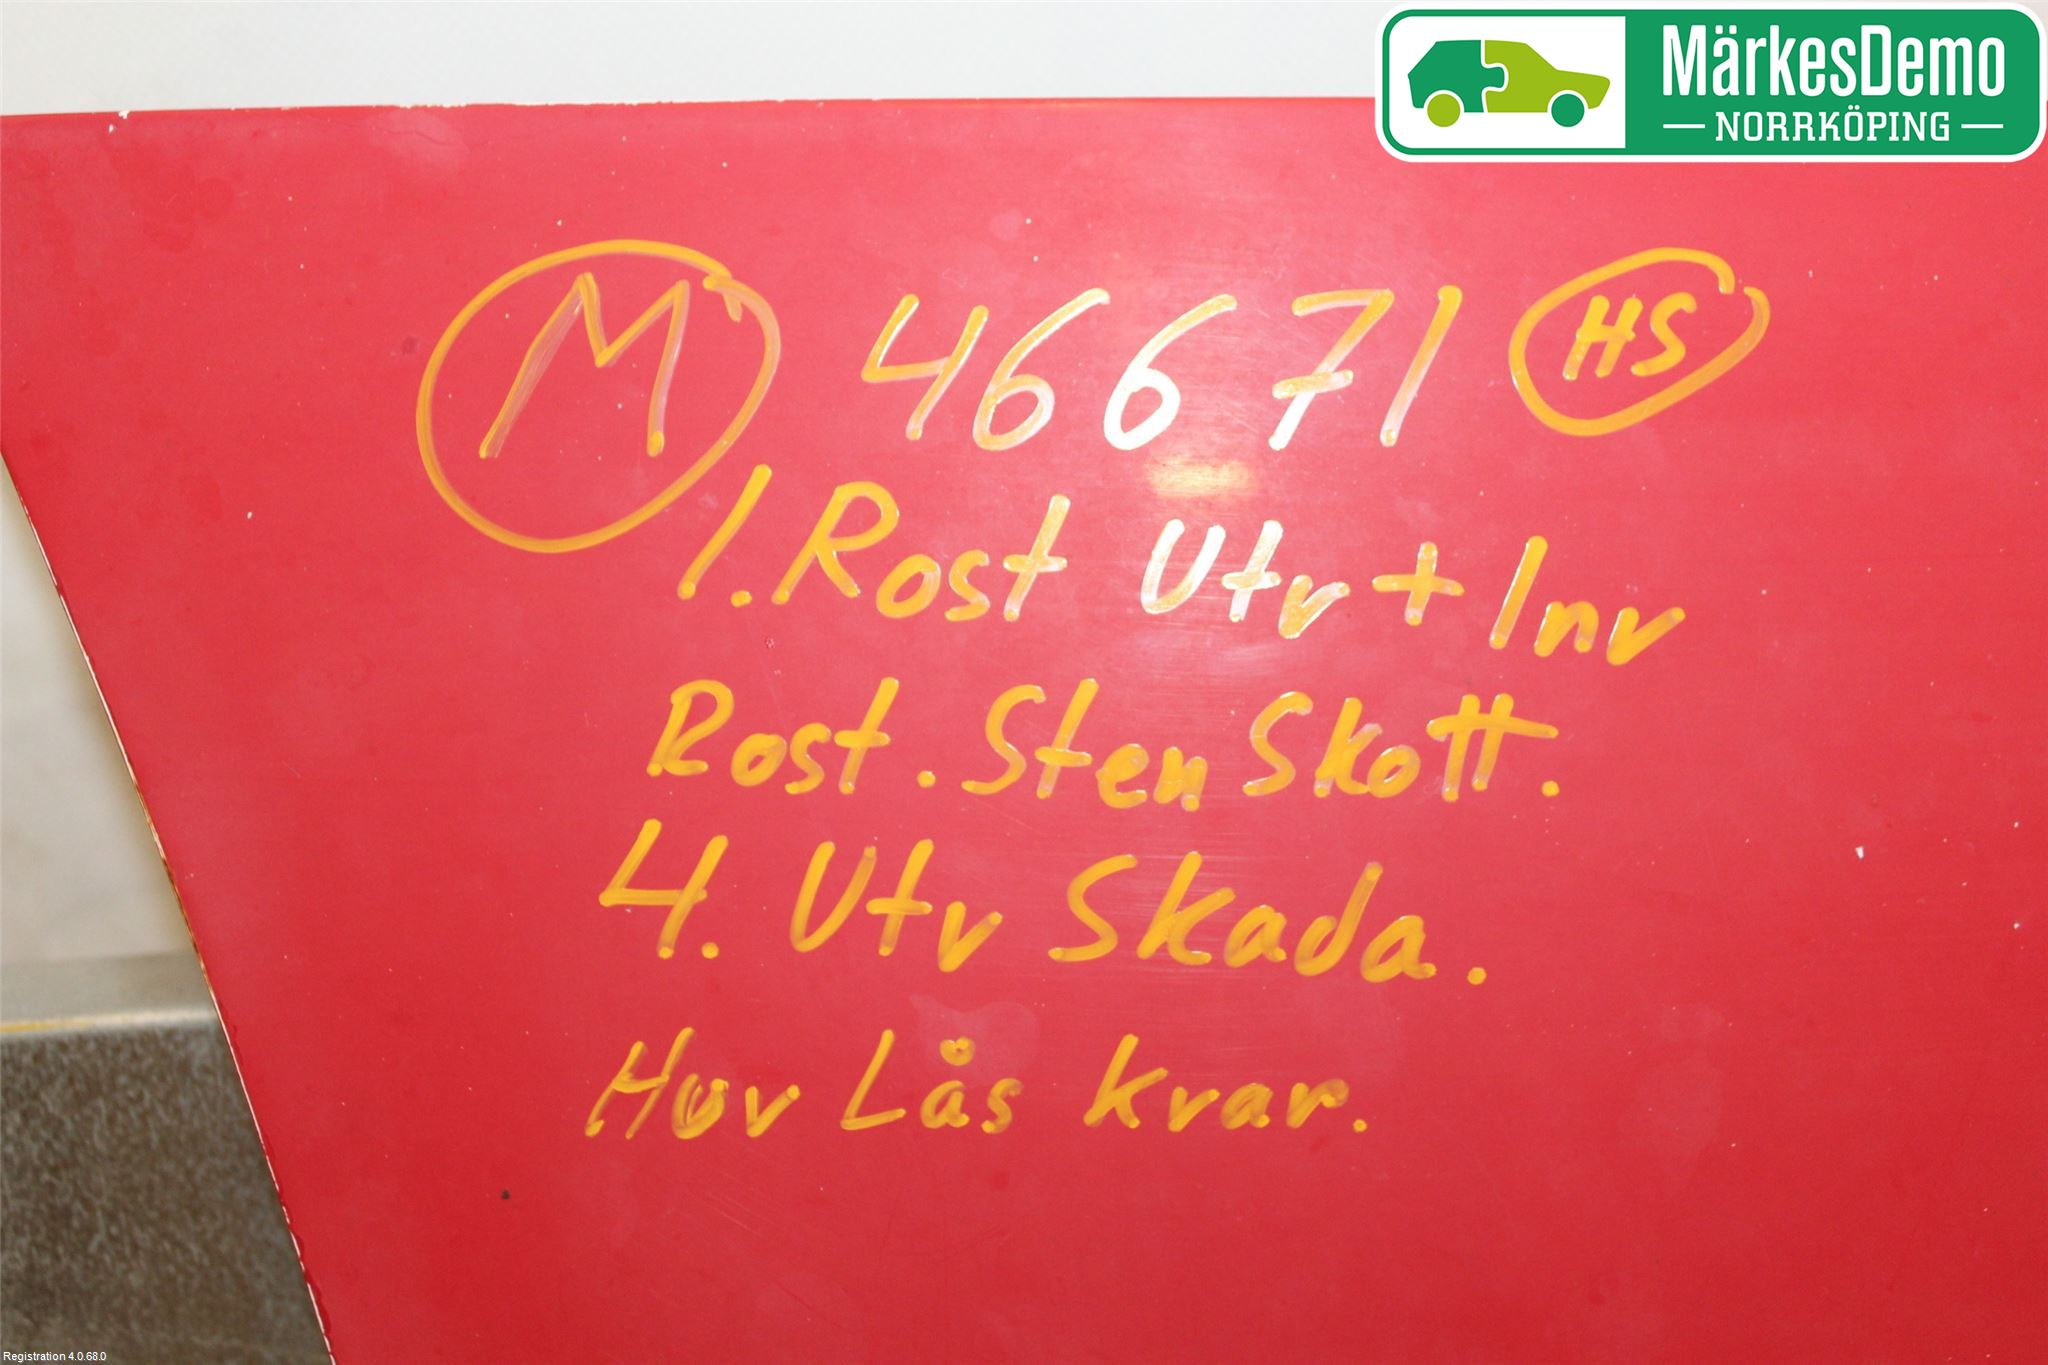 MärkesDemo
NORRKÖPING
M 46671 HS
1. Rost Utv + Inv
Rost. Sten Skott.
4. Utv Skada.
Huv Lås kvar.
Registration 4.0.68.0